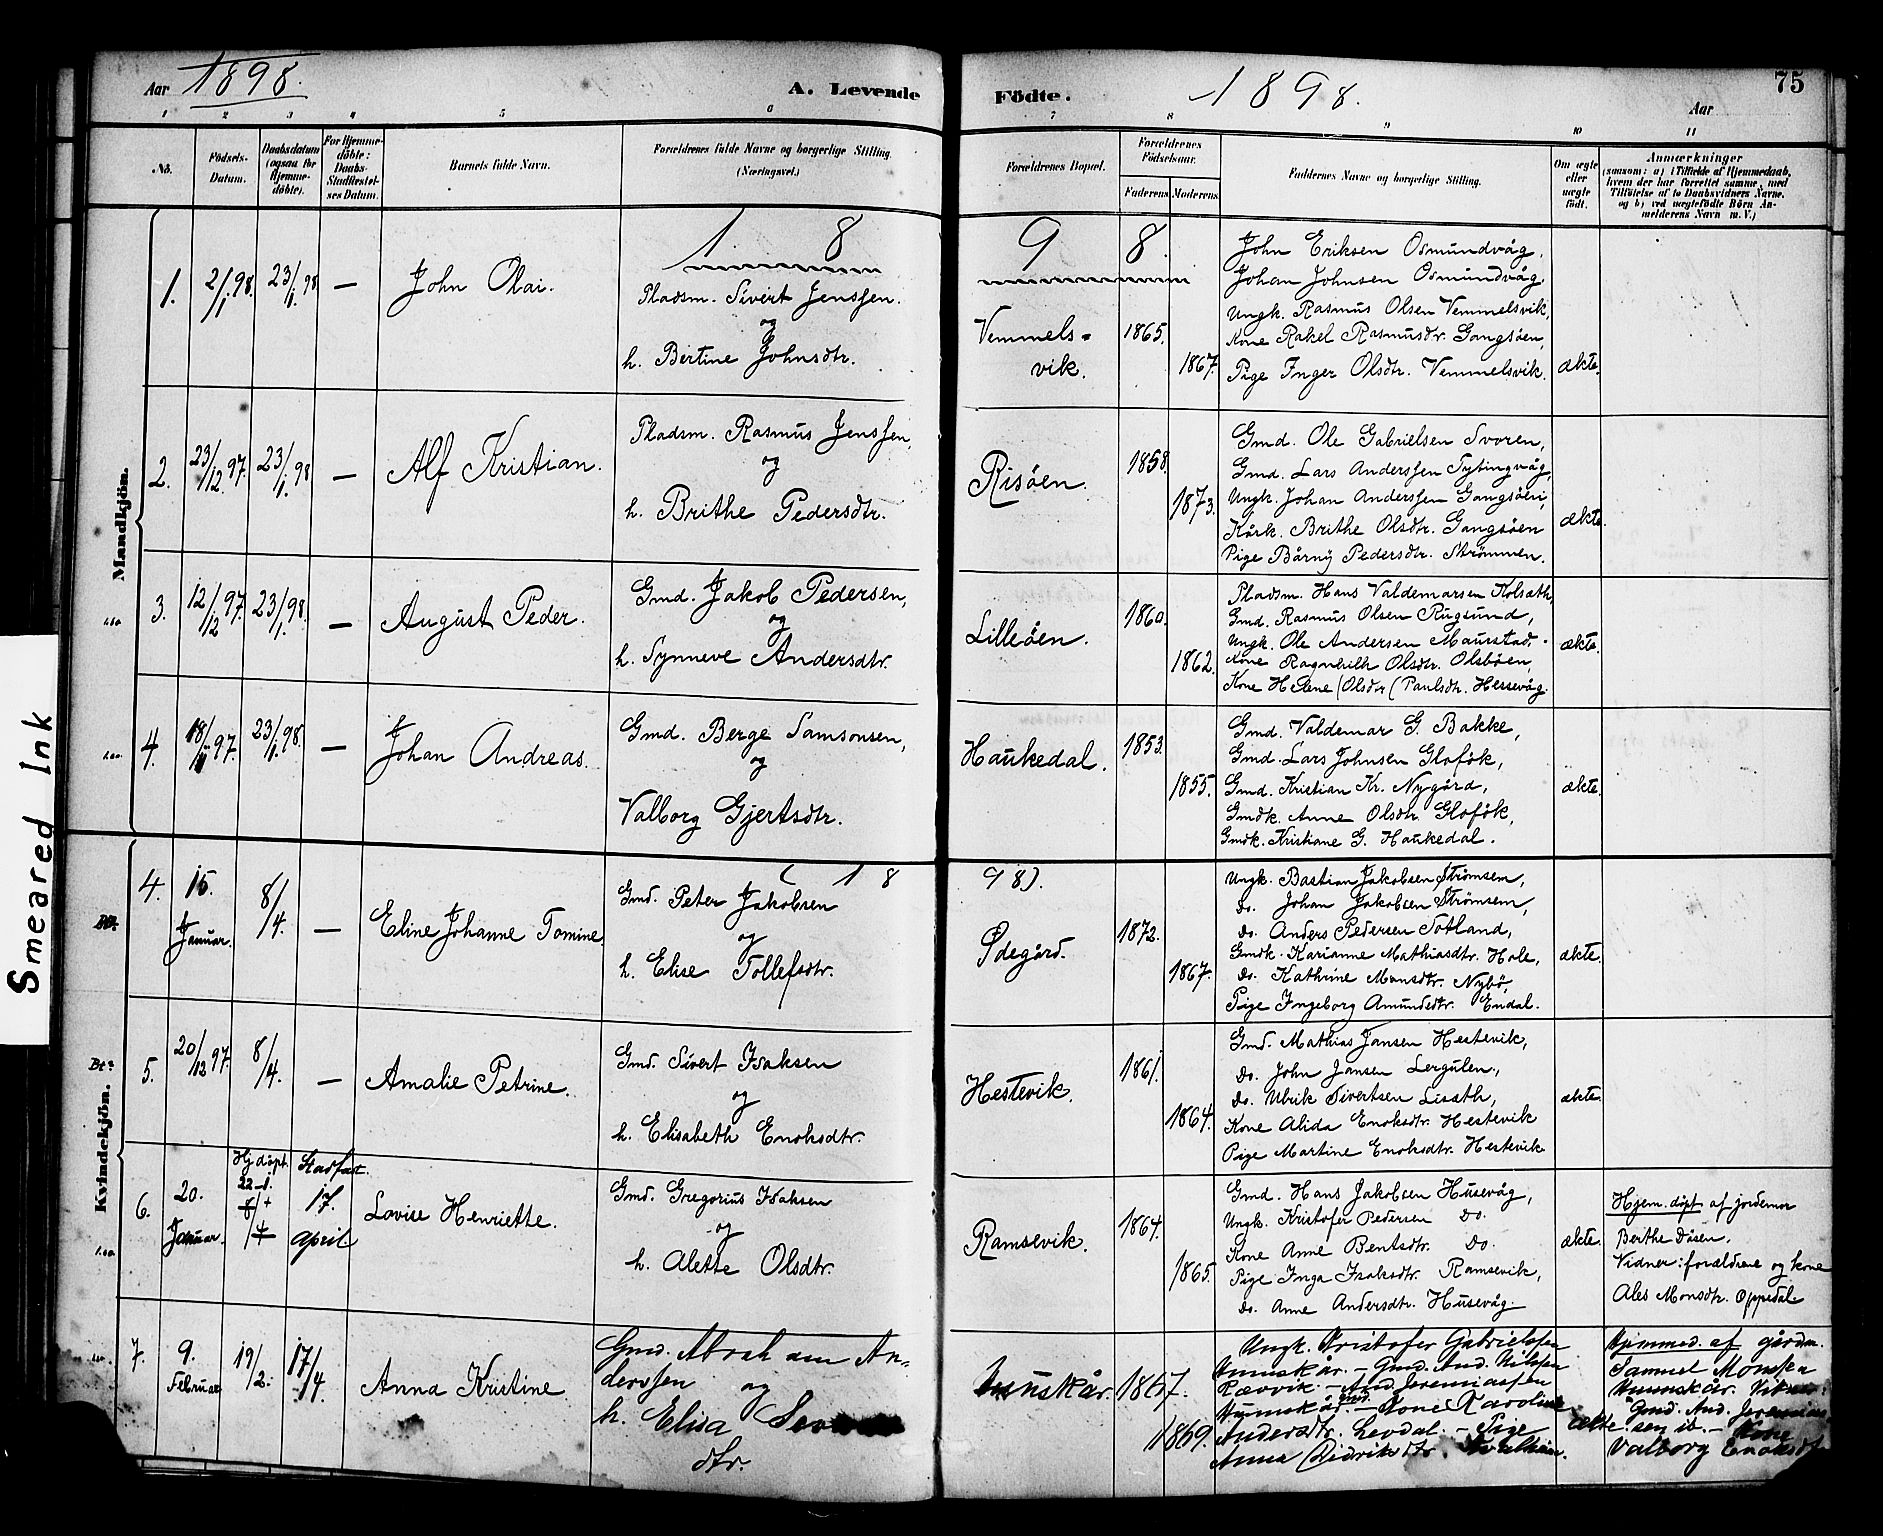 Aar 1898. A. Levende Födte. 1898. Aar 75
1 2 3 4 5 6 7 8 9 10 11
No.
Födsels-
Datum.
Daabsdatum
(ogsaa for
Hjemme-
döbte).
For Hjemme-
döbte:
Daabs-
Stadfæstel-
ses Datum.
Barnets fulde Navn.
Forældrenes fulde Navne og borgerlige Stilling.
(Næringsvei.)
Forældrenes Bopæl.
Forældrenes
Födselsaar.
Faderens Moderens
Faddernes Navne og borgerlige Stilling.
Om ægte
eller
uægte
födt.
Anmærkninger
(saasom: a) i Tilfælde af Hjemmedaab,
hvem der har forrettet samme, med
Tilföielse af to Daabsvidners Navne,
og b) ved uægtefödte Börn An-
melderens Navn m. V.)
Smeared Ink
Mandkjön.
1 8 9 8.
1. 2/1.98. 23/1.98 — John Olai.
Pladsm. Sivert Jenssen.
og
h. Bertine Johnsdtr.
Vemmels=
vik.
1865.
1867.
John Eriksen Osmundvåg,
Johan Johnsen Osmundvåg
Ungk. Rasmus Olsen Vemmelsvik,
Kone Rakel Rasmusdtr. Gangsöen,
Pige Inger Olsdtr. Vemmelsvik.
ækte.
2. 23/12.97. 23/1.98 — Alf Kristian.
Pladsm. Rasmus Jenssen,
og
h. Brithe Pedersdtr.
Risöen.
1858.
1873.
Gmd. Ole Gabrielsen Svoren,
Gmd. Lars Anderssen Sytingvåg,
Ungk. Johan Anderssen Gangsöen,
Kårk. Brithe Olsdtr. Gangsöen
Pige Bårny Pedersdtr. Strömmen.
ækte.
3. 12/12 97. 23/1.98. — August Peder.
Gmd. Jakob Pedersen,
og
h. Synneve Andersdtr.
Lilleöen.
1860.
1862.
Pladsm. Hans Valdemarsen Kolsæth,
Gmd. Rasmus Olsen Rugsund,
Ungk. Ole Andersen Maurstad.
Kone Ragnhilh Olsdtr. Olsböen,
Kone Helene (Olsdtr (Paulsdtr. Hessevåg.
ækte.
4. 18/11 97. 23/1.98. — Johan Andreas.
Gmd. Berge Samsonsen,
og
Valborg Gjertsdtr.
Haukedal.
1853.
1855.
Gmd. Valdemar G. Bakke,
Gmd. Lars Johnsen Glofök,
Gmd. Kristian Kr. Nygård,
Gmdk. Anne Olsdtr. Glofök,
Gmdk. Kristiane G. Haukedal.
ækte.
Kvindekjön.
( 1 8 9 8 ).
4. 15. Januar. 8/4. — Eline Johanne Tomine
Gmd. Peter Jakobsen
og
h. Elise Tollefsdtr.
Ødegård.
1872.
1867.
Ungk. Bastian Jakobsen Strömsem,
Do. Johan Jakobsen Strömsem,
Do. Anders Pedersen Totland,
Gmdk. Karianne Mathiasdtr. Hole,
Do. Kathrine Monsdtr. Nybö,
Pige Ingeborg Amundsdtr. Endal.
ækte.
5. 20/12 97. 8/4. — Amalie Petrine.
Gmd. Sivert Isaksen
og
h. Elisabeth Enoksdtr.
Hestevik.
1861.
1864.
Gmd. Mathias Jansen Hestevik,
Do. John Jansen Lergulen,
Do. Ulrik Sivertsen Liseth,
Kone Alida Enoksdtr. Hestevik
Pige Martine Enoksdtr. Hestevik
ækte.
6. 20. Januar. Hj. döpt. 22-1. 8/4 Stadfæst. 17. april. Lovise Henriette.
Gmd. Gregorius Isaksen
og
h. Alette Olsdtr.
Ramsevik.
1864.
1865.
Gmd. Hans Jakobsen Husevåg,
Ungk. Kristofer Pedersen Do.
Kone Anne Bentsdtr. Do.
Pige Inga Isaksdtr. Ramsevik,
Do. Anne Andersdtr. Husevåg.
ækte.
Hjem. döpt af jordemor
Berthe Dösen.
Vidner: forældrene og kone
Ales Monsdtr. Oppedal.
7. 9. Februar 19/2. 17/4 Anna Kristine
Gmd. Abraham An-
derssen og
h. Elisa
dtr.
1867.
1869.
Ungk. Kristofer Gabrielsen
Hunskår. – Gmd. And. Nilsen
Rævvik. – And. Jeremiassen
Hunskår. – Kone Karoline
Andersdtr. Levdal. – Pige
Anna Didriksdtr.
ækte.
Hjemmed. af gårdm.
Samuel Monsen
Hunskår.
Gmd. And. Jeremias-
sen ib. – Kone
Valborg Enoksdtr